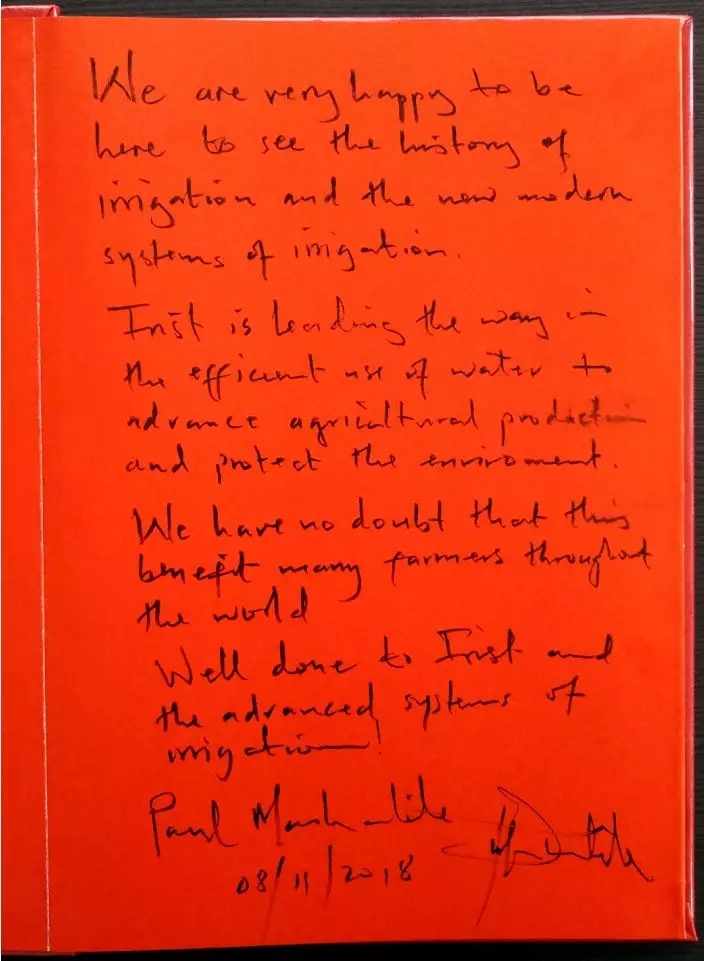 We are very happy to be
here to see the history of
irrigation and the new modern
systems of irrigation.
Irist is leading the way in
the efficient use of water to
advance agricultural production
and protect the enviroment.
We have no doubt that this
benefit many farmers throughout
the world
Well done to Irist and
the advanced systems of
irrigation!
Paul
08/11/2018